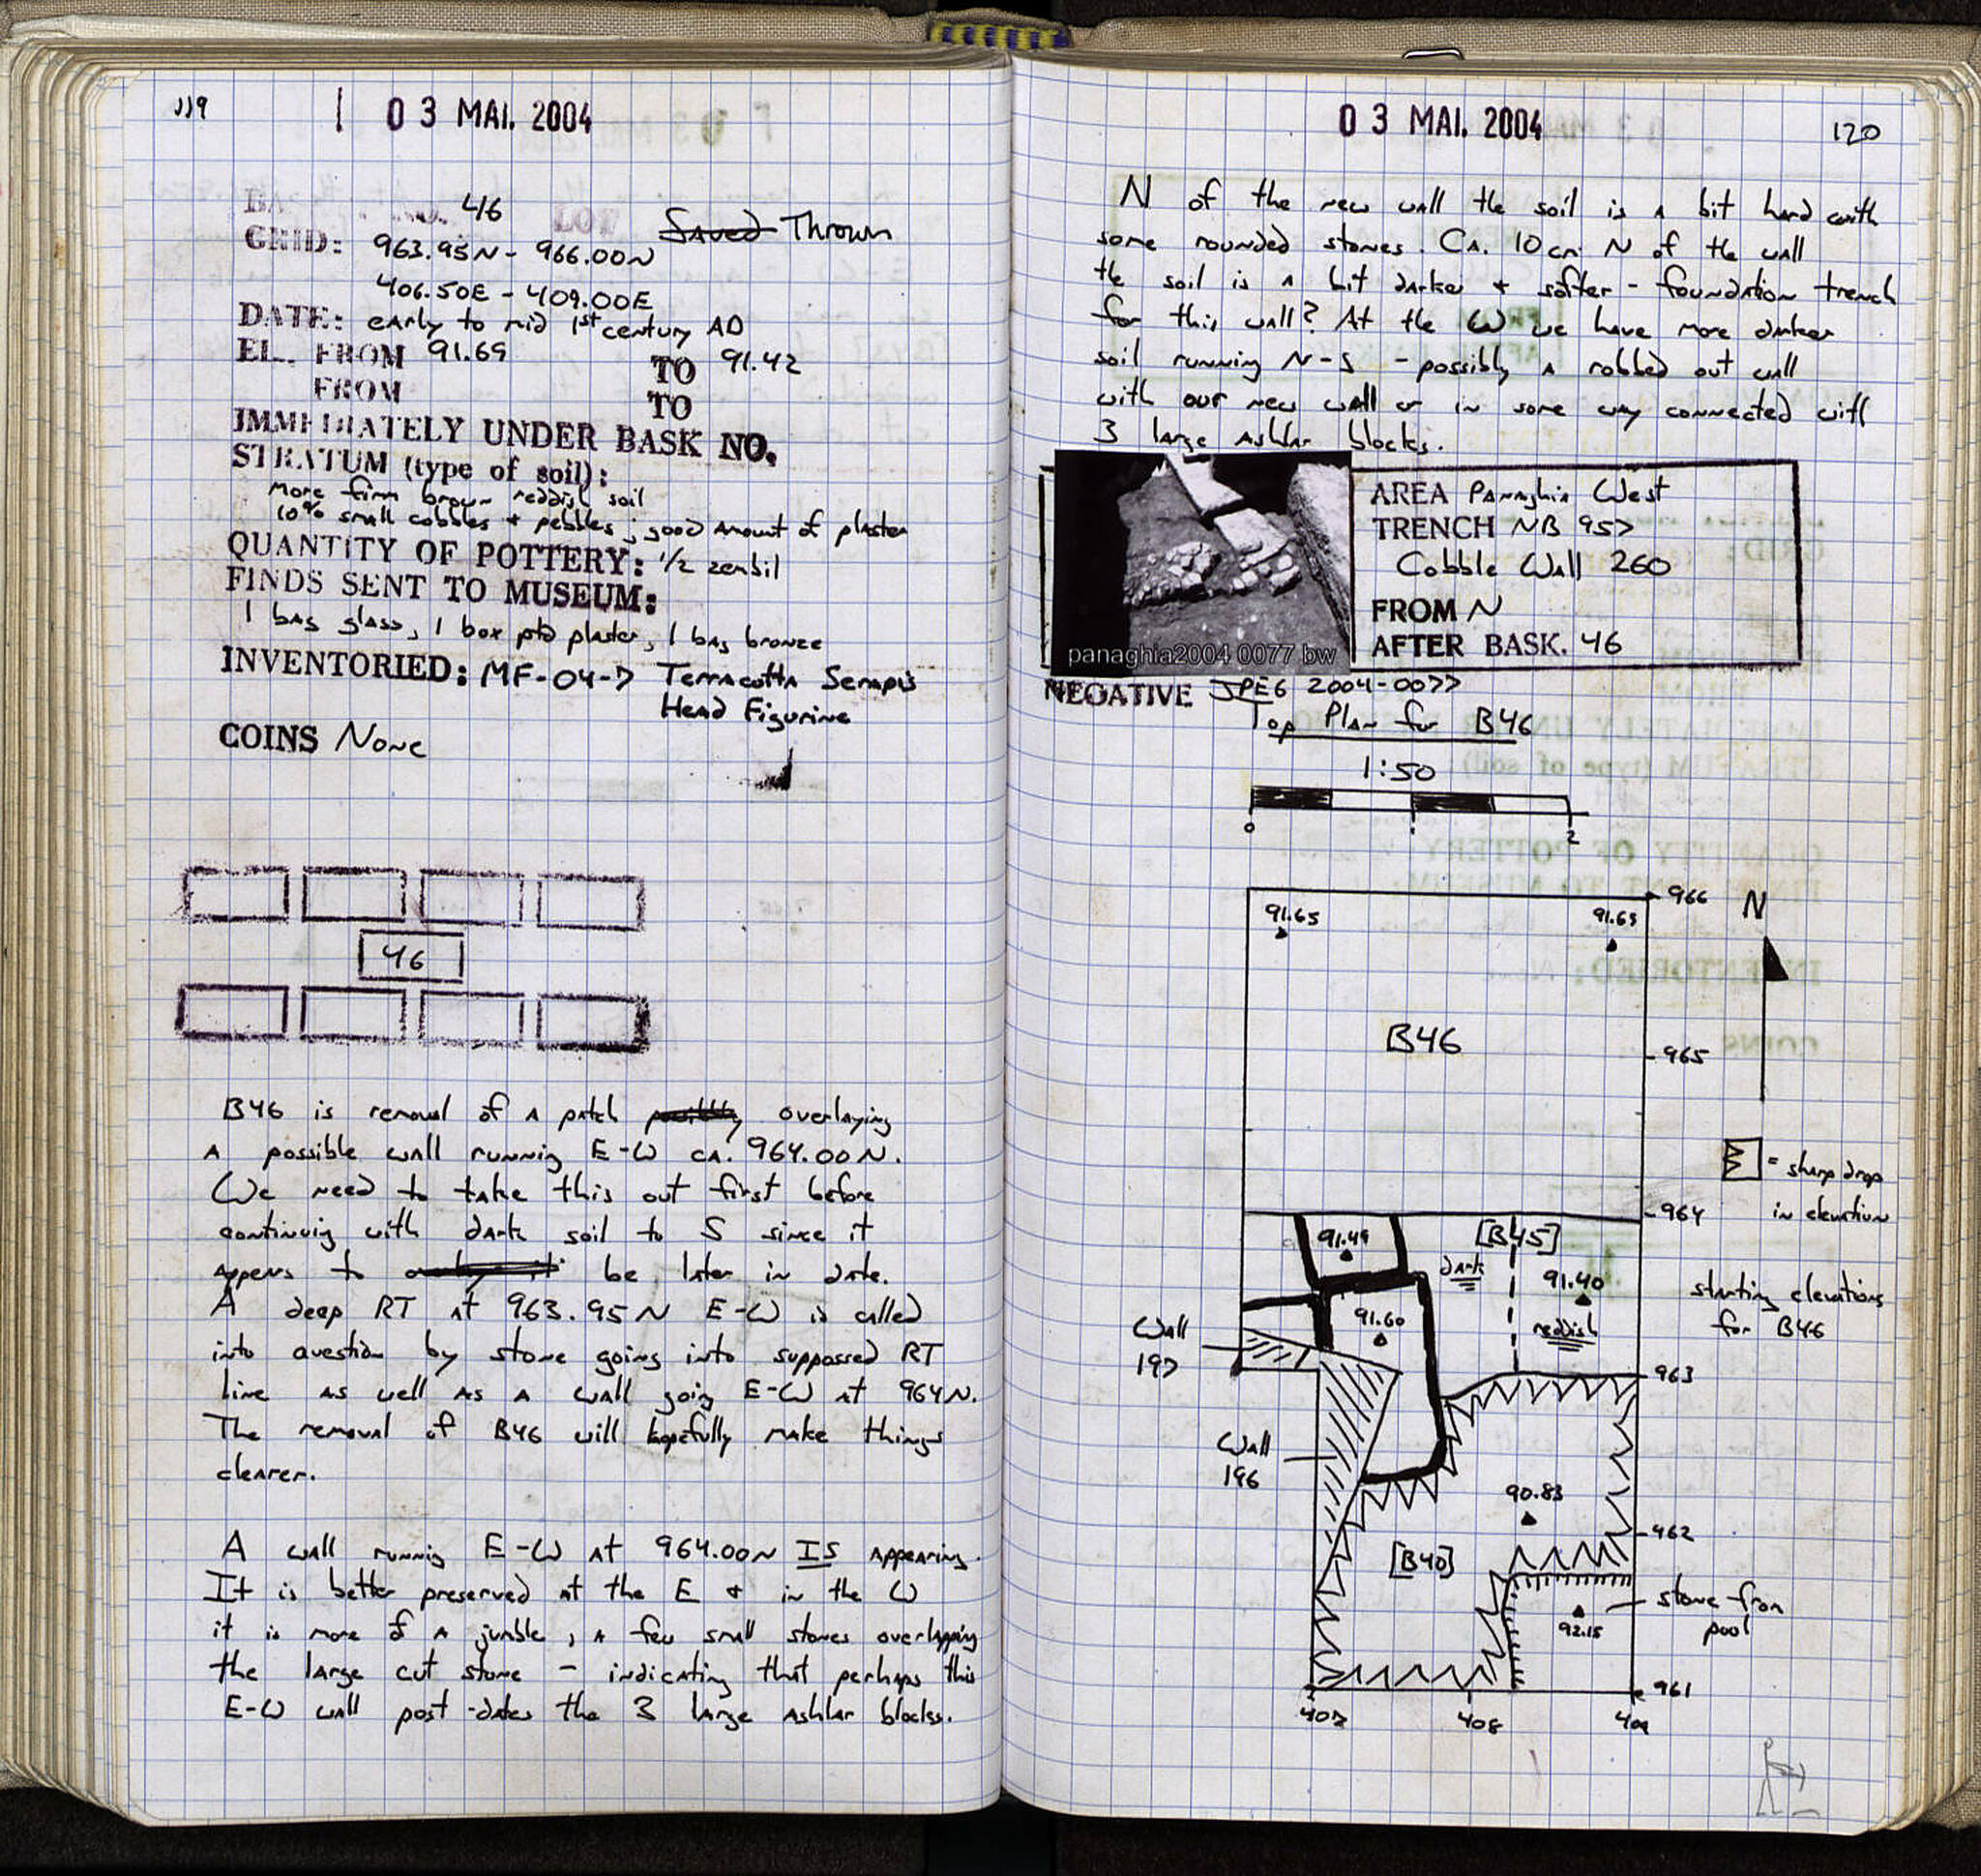 119
03 MAI. 2004
BASK. NO. 46 LOT
Saved Thrown
GRID: 963.95N - 966.00N
406.50E - 409.00E
DATE: early to mid 1st century AD
EL. FROM 91.69 TO 91.42
FROM TO
IMMEDIATELY UNDER BASK NO.
STRATUM (type of soil):
More firm brown reddish soil
10% small cobbles + pebbles; good amount of plaster
QUANTITY OF POTTERY: 1/2 zembil
FINDS SENT TO MUSEUM:
1 bag glass, 1 box ptd plaster, 1 bag bronze
INVENTORIED: MF-04-7 Terracotta Serapis
Head Figurine
COINS None
46
B46 is removal of a patch possibly overlaying
a possible wall running E-W ca. 964.00N.
We need to take this out first before
continuig with dark soil to S since it
appears to be later in date.
A deep RT at 963.95N E-W is called
into question by stone going into suppossed RT
line as well as a wall goig E-W at 964N.
The removal of B46 will hopefully make things
clearer.
A wall runnig E-W at 964.00N IS appearing.
It is better preserved at the E + in the W
it is more of a jumble, a few small stones overlapping
the large cut stone - indicating that perhaps this
E-W wall post-dates the 3 large ashlar blocks.
03 MAI. 2004
120
N of the new wall the soil is a bit hard with
some rounded stones. Ca. 10cm N of the wall
the soil is a bit darker + softer - foundation trench
for this wall? At the W we have more darker
soil running N-S - possibly a robbed out wall
with our new wall or in some way connected with
3 large ashlar blocks.
AREA Panaghia West
TRENCH NB 957
Cobble Wall 260
FROM N
AFTER BASK. 46
panaghia2004 0077 bw
NEGATIVE JPEG 2004-0077
Top Plan for B46
1:50
0 1 2
966 N
91.65 91.69
B46
965
= sharp drop
in elevation
964
91.49 [B45]
dark
91.40
reddish
starting elevations
for B46
91.60
Wall
197
963
Wall
196
90.83
962
[B40]
stone from
pool
92.15
961
407 408 409